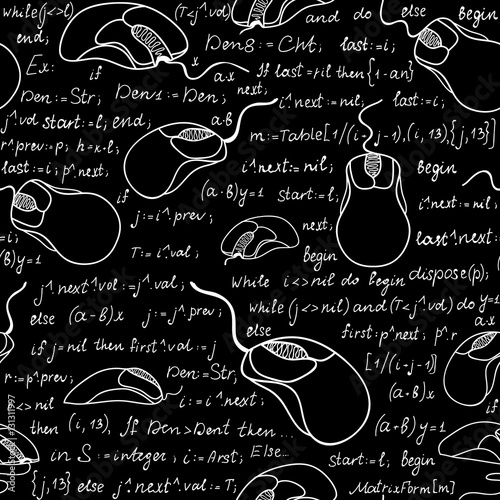 while(j<>l) (T<j^.vol) and do else Begin
end; Den8 := Cht; last:=i;
Ex: if a·x If last=ril then {1-an}
Den:=Str; Den1:=Den; next; i^.next:=nil; last:=i;
j^.vol start:=l; end; a·b m:=Table[1/(i- j-1),(i,13),{j,13}]
r^.prev:=p; h=x-l;
last:=i; p^.next; i^.next:=nil; Begin
if (a-b)y=1 start:=l; i^.next:=nil;
j:=i^.prev; next; last^.next:=
:=i; T:=i^.val; Begin
(a-b)y=1 while i<>nil do Begin dispose(p);
j^.next^.vol:=j^.val; while (j<>nil) and (T<j^.vol) do y=
else (a-b)x j:=j^.prev; else first:p^.next; p^.r
if j=nil then first^.val:=j [1/(i-j-1)]
r:=p^.prev; Den:=Str; (a+b)x
<>nil i:=i^.next;
then (i,13), If Den>Dent then... (a+b)y=1
in S:=integer, i:=Arst; Else...
{j,13} else j^.next^.vol:=j^.val; start:=l; Begin
MatrixForm[m]